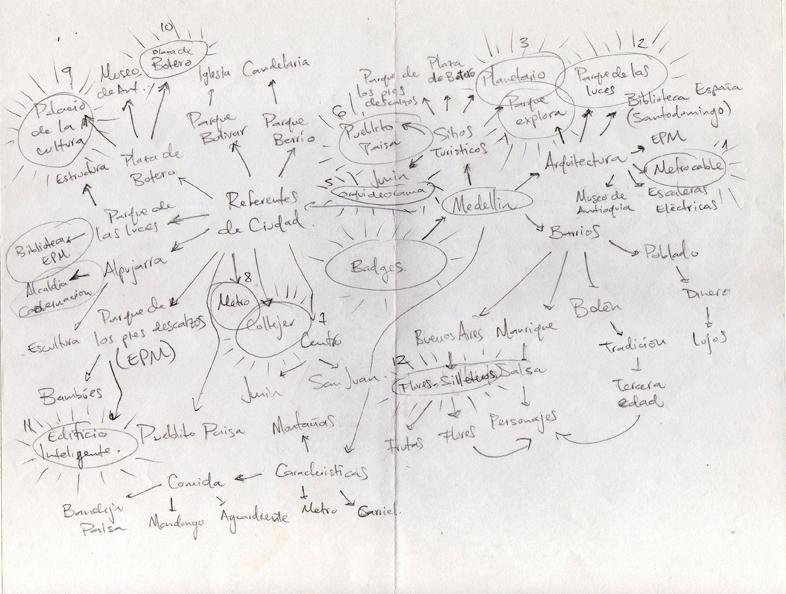 10
Plaza de
Botero
9
Museo
de Ant.
Iglesia
Candelaria
Palacio
de la
cultura
Estructura
Plaza de
Botero
Parque
Bolivar
Parque
Berrio
Referentes
de Ciudad
Parque de
las luces
Biblioteca
EPM
Alpujarra
Alcaldia
Gobernacion
Escultura
Parque de
los pies descalzos
(EPM)
Bambúes
11
Edificio
Inteligente.
Pueblito Paisa
8
Metro
Coltejer
7
Centro
Junin
San Juan
Montañas
Caracteristicas
Comida
Bandeja
Paisa
Mondongo
Aguardiente
Metro
Carriel
Parque de
los pies
descalzos
Plaza
de Botero
6
Pueblito
Paisa
Sitios
Turisticos
5
Junin
orquideorama
Medellin
Badges
3
Planetario
Parque
explora
2
Parque de las
luces
Biblioteca España
(Santodomingo)
Arquitectura
EPM
1
Metrocable
Museo de
Antioquia
Escaleras
Eléctricas
Barrios
Poblado
Dinero
Lujos
Belén
Tradicion
Tercera
edad
Buenos Aires
Manrique
12
Flores-Silleteros
Salsa
Frutas
Flores
Personajes